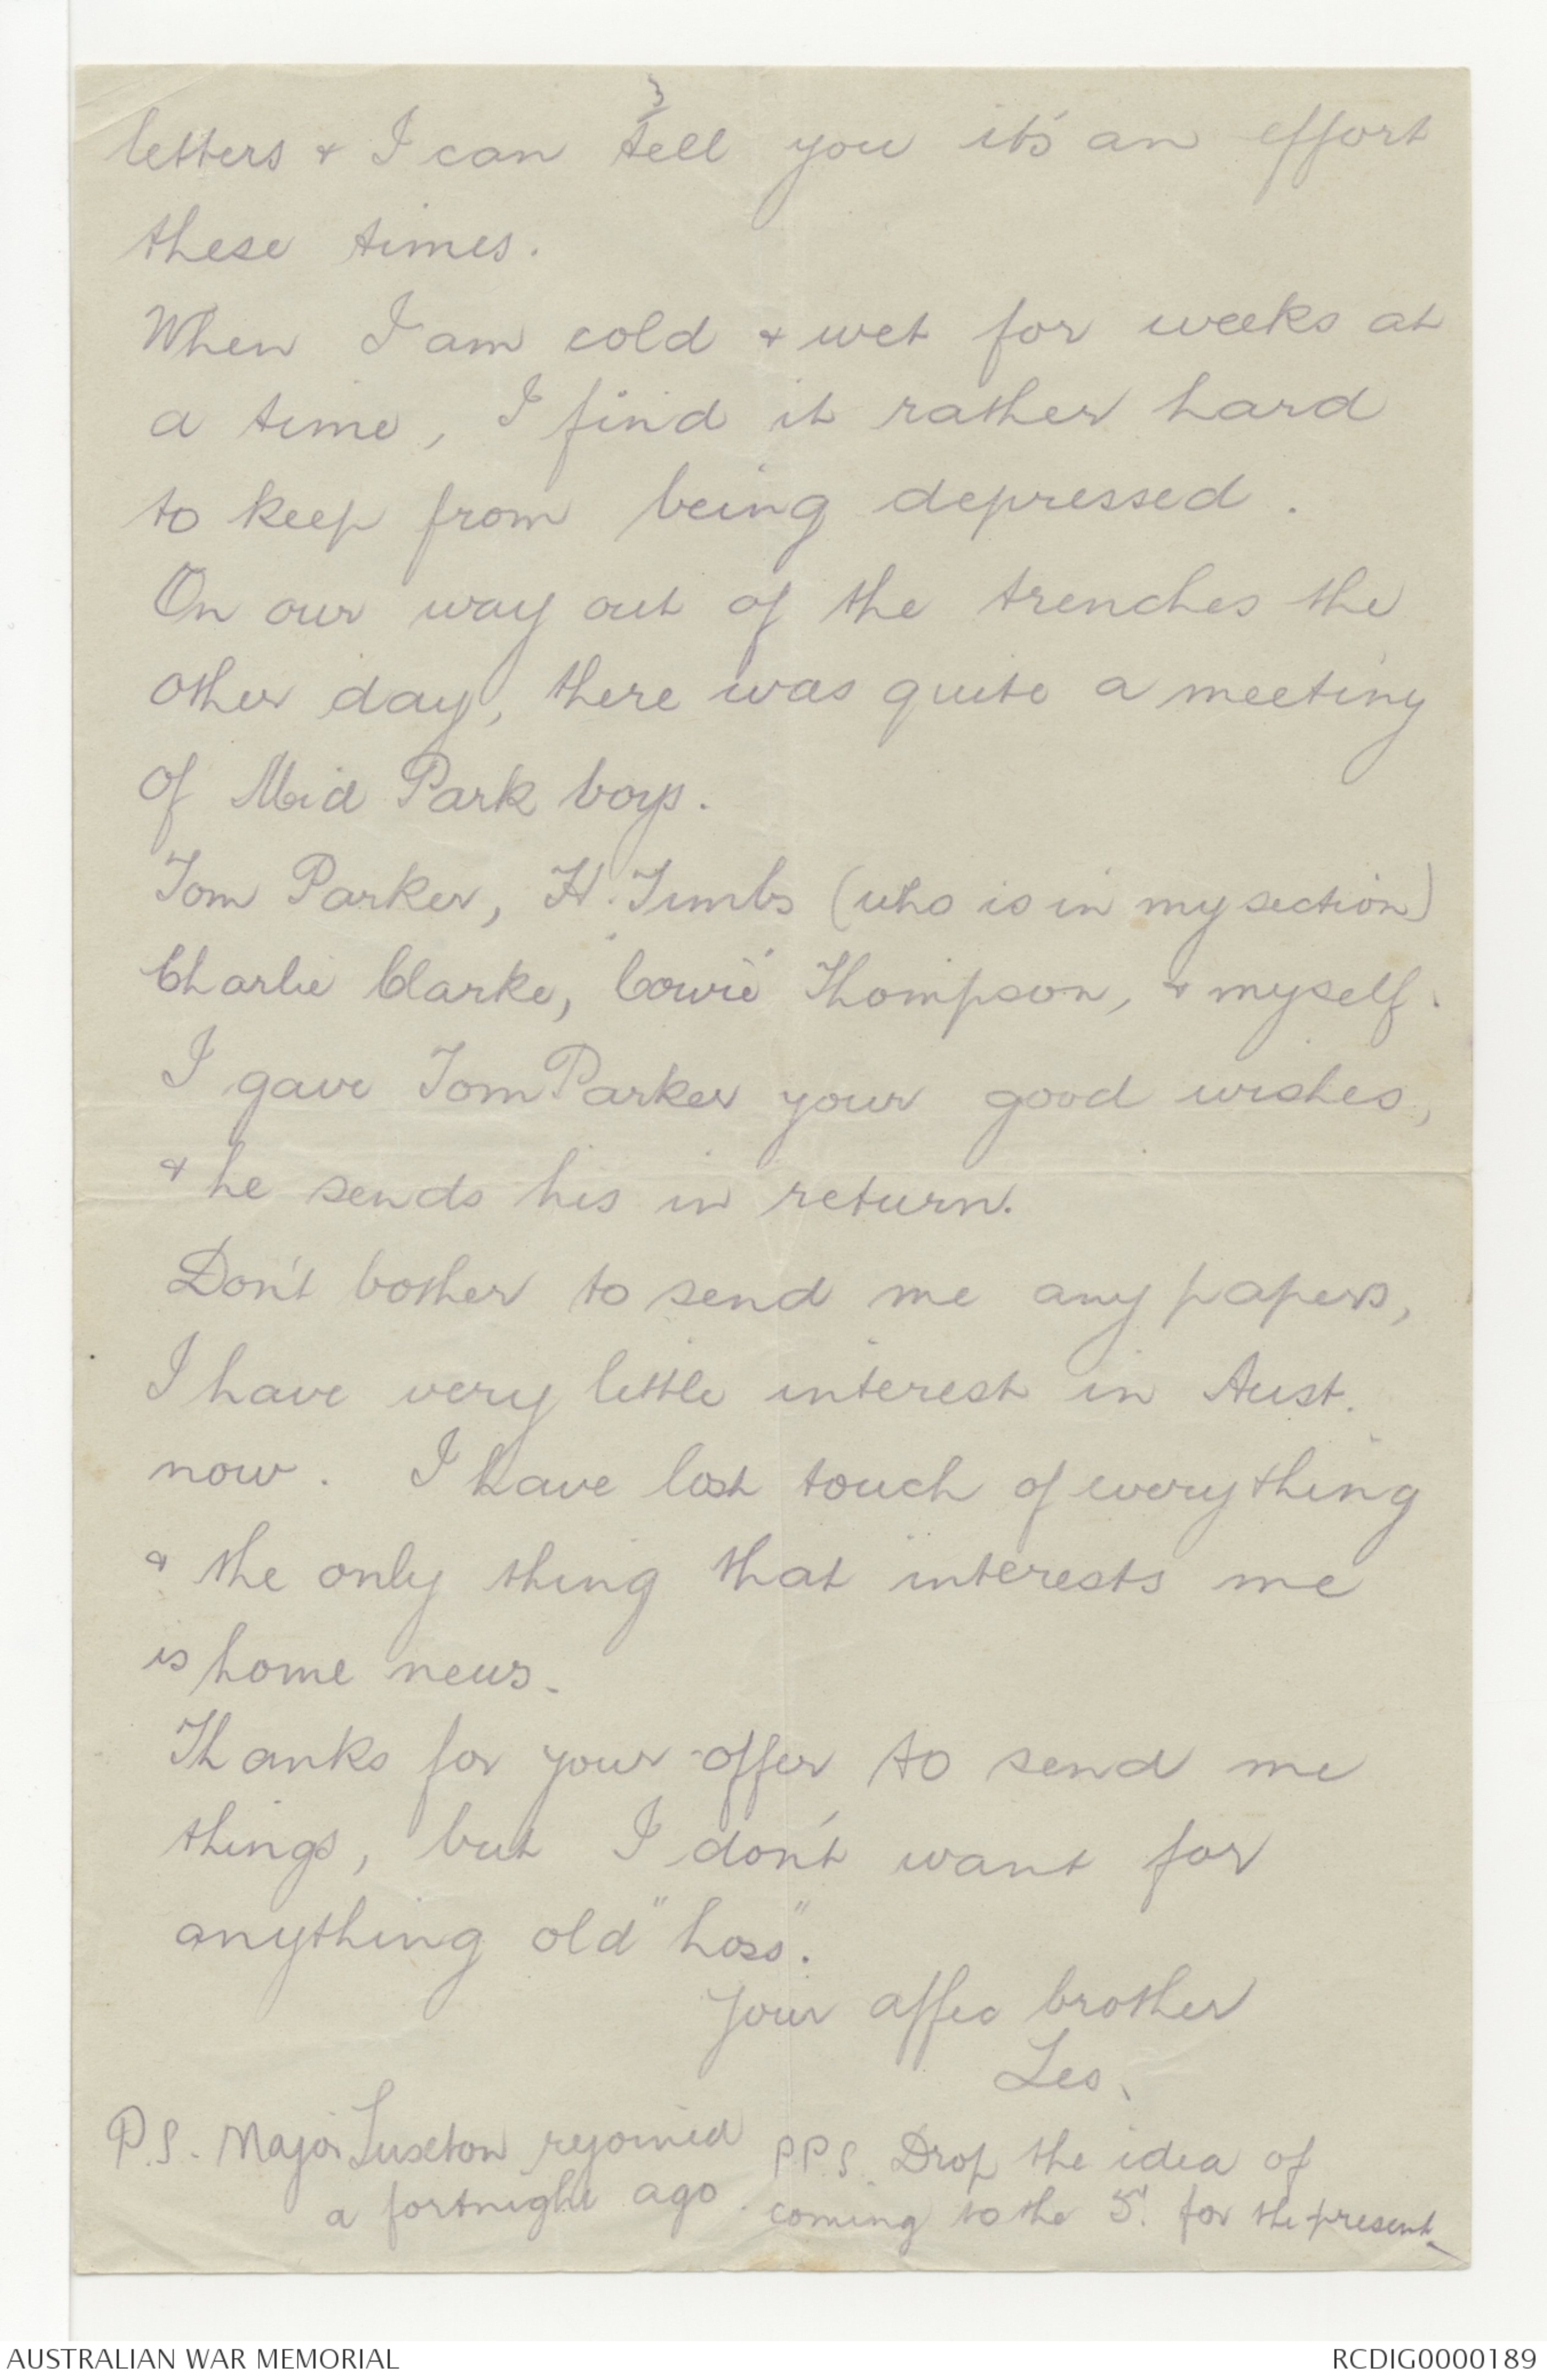 3
letters & I can tell you it's an effort
these times.
When I am cold & wet for weeks at
a time, I find it rather hard
to keep from being depressed.
On our way out of the trenches the
other day, there was quite a meeting
of Mid Park boys.
Tom Parker, H. Timbs (who is in my section)
Charlie Clarke, "Cowrie" Thompson, & myself.
I gave Tom Parker your good wishes,
& he sends his in return.
Don't bother to send me any papers,
I have very little interest in Aust.
now. I have lost touch of everything
& the only thing that interests me
is home news.
Thanks for your offer to send me
things, but I don't want for
anything old "hoss".
Your affec brother
Les.
P.S. Major Luxton rejoined
a fortnight ago.
P.P.S. Drop the idea of
coming to the 5'. for the present.
AUSTRALIAN WAR MEMORIAL
RCDIG0000189